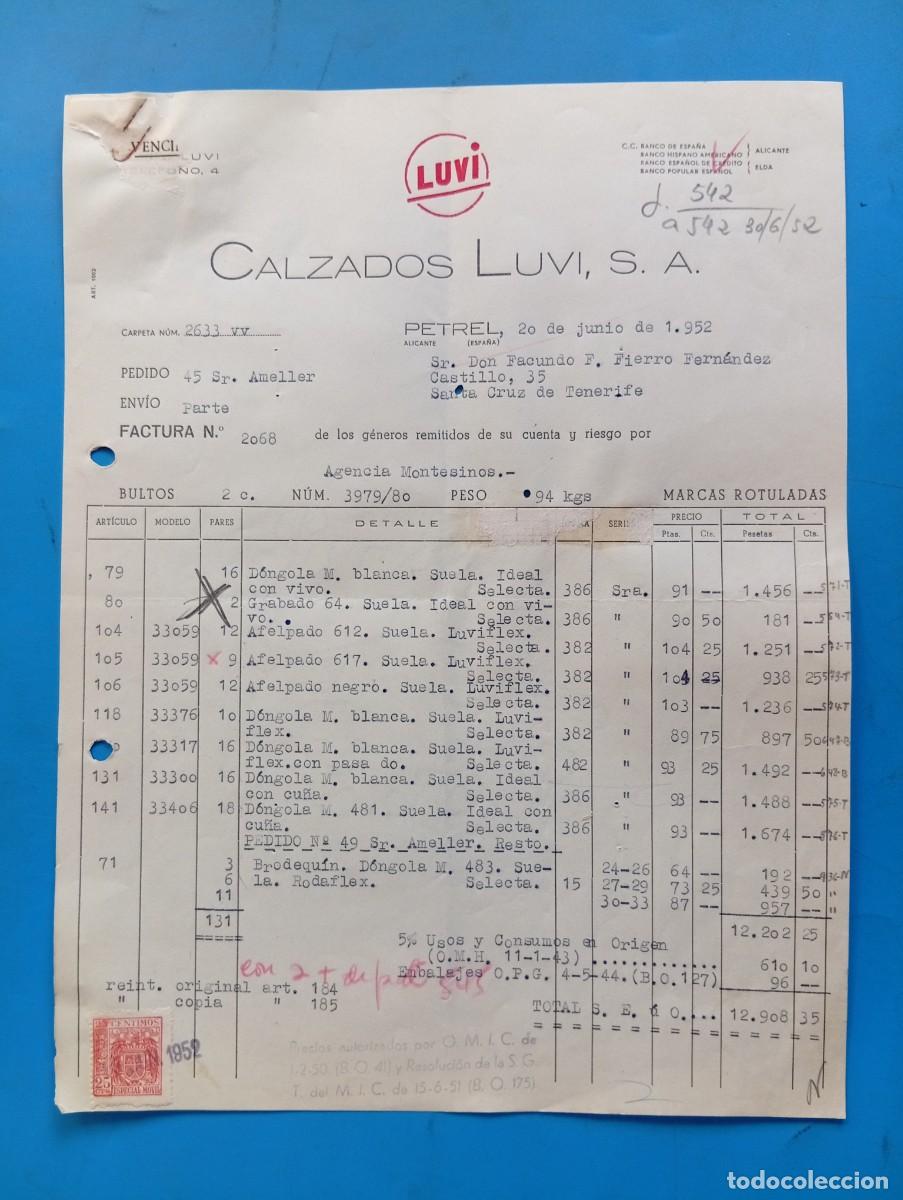 VENCI
LUVI
TELÉFONO, 4
LUVI
C.C. BANCO DE ESPAÑA
BANCO HISPANO AMERICANO
ALICANTE
BANCO ESPAÑOL DE CRÉDITO
BANCO POPULAR ESPAÑOL
ELDA
542
a 542 30/6/52
CALZADOS LUVI, S. A.
ART. 1002
CARPETA NÚM. 2633 VV
PETREL, 20 de junio de 1.952
ALICANTE (ESPAÑA)
Sr. Don Facundo F. Fierro Fernández
PEDIDO 45 Sr. Ameller
Castillo, 35
Santa Cruz de Tenerife
ENVÍO Parte
FACTURA N.º 2068 de los géneros remitidos de su cuenta y riesgo por
Agencia Montesinos.-
BULTOS 2 c. NÚM. 3979/80 PESO 94 kgs MARCAS ROTULADAS
ARTÍCULO MODELO PARES DETALLE SERIE PRECIO TOTAL
Ptas. Cts. Pesetas Cts.
79 16 Dóngola M. blanca. Suela. Ideal
con vivo. Selecta. 386 Sra. 91 -- 1.456 -- 571-T
80 2 Grabado 64. Suela. Ideal con vi-
vo. Selecta. 386 " 90 50 181 --
104 33059 12 Afelpado 612. Suela. Luviflex.
Selecta. 382 " 104 25 1.251 -- 572-T
105 33059 x 9 Afelpado 617. Suela. Luviflex.
Selecta. 382 " 104 25 938 25 573-T
106 33059 12 Afelpado negro. Suela. Luviflex.
Selecta. 382 " 103 -- 1.236 -- 574-T
118 33376 10 Dóngola M. blanca. Suela. Luvi-
flex. Selecta. 382 " 89 75 897 50
33317 16 Dóngola M. blanca. Suela. Luvi-
flex.con pasa do. Selecta. 482 " 93 25 1.492 --
131 33300 16 Dóngola M. blanca. Suela. Ideal
con cuña. Selecta. 386 " 93 -- 1.488 -- 575-T
141 33406 18 Dóngola M. 481. Suela. Ideal con
cuña. Selecta. 386 " 93 -- 1.674 -- 576-T
PEDIDO Nº 49 Sr. Ameller. Resto.
71 3 Brodequín. Dóngola M. 483. Sue- 24-26 64 -- 192 --
6 la. Rodaflex. Selecta. 15 27-29 73 25 439 50 "
11 30-33 87 -- 957 -- "
131 12.202 25
=====
5% Usos y Consumos en Origen
(O.M.H. 11-1-43) 610 10
Embalajes O.P.G. 4-5-44.(B.O.127) 96 --
reint. original art. 184
" copia " 185
TOTAL S. E. ú O.... 12.908 35
25 CENTIMOS
25 CTS
ESPECIAL MOVIL
1952
Precios autorizados por O. M. I. C. de
1-2-50. (B. O. 41) y Resolución de la S. G.
T. del M. I. C. de 15-6-51 (B. O. 175)
todocoleccion